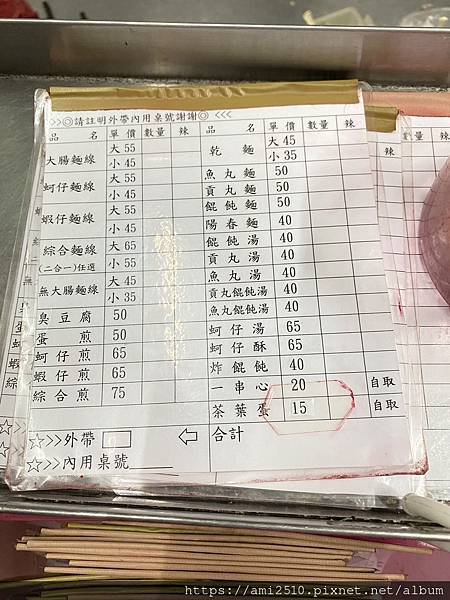 >>◎請註明外帶內用桌號謝謝◎ <<<
品 名 單價 數量 辣
大腸麵線 大 55
小 45
蚵仔麵線 大 55
小 45
蝦仔麵線 大 55
小 45
綜合麵線 大 65
(二合一)任選 小 55
無大腸麵線 大 45
小 35
臭豆腐 50
蛋煎 50
蚵仔煎 65
蝦仔煎 65
綜合煎 75
☆>>外帶
☆>>內用桌號
品 名 單價 數量 辣
乾麵 大 45
小 35
魚丸麵 50
貢丸麵 50
餛飩麵 50
陽春麵 40
餛飩湯 40
貢丸湯 40
魚丸湯 40
貢丸餛飩湯 40
魚丸餛飩湯 40
蚵仔湯 65
蚵仔酥 65
炸餛飩 40
一串心 20 自取
茶葉蛋 15 自取
⇦ 合計
https://ami2510.pixnet.net/album